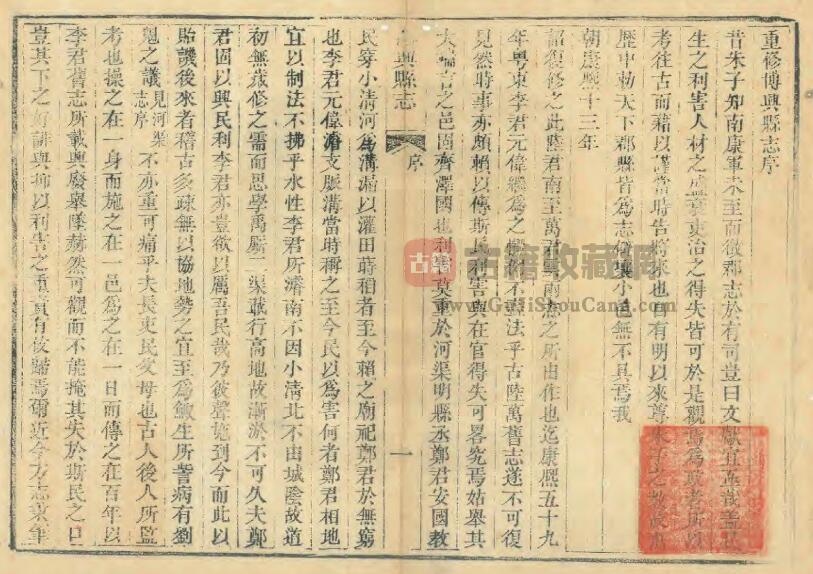 重修博興縣志序
昔朱子知南康軍未至而徵郡志於有司豈曰文獻宜
生之利害人材之盛衰吏治之得失皆可於是觀焉為政者所以
考往古而藉以謹當時告將來也自有明以來尊朱子之教故
歷中勅天下郡縣皆為志僻壤小邑無不具焉我
朝康熙十三年
詔復修之此陸君南至萬君
年粤東李君元偉繼為之
見然時事亦頗賴以傳斯民利害與在官得失可畧究焉姑舉其
大端言之邑固齊澤國也利害莫重於河渠明縣丞鄭君安國教
興縣志
序
一
民穿小清河為溝滿以灌田蒔稻者至今賴之廟祀鄭君於無窮
也李君元偉濬支脈溝當時稱之至今民以為害何者鄭君相地
宜以制法不拂乎水性李君所濬南不因小清北不由城陰故道
初無歲修之需而思學禹厮二渠載行高地故漸淤不可久夫鄭
君固以興民利李君亦豈欲以厲吾民哉乃彼聲施到今而此以
貽譏後來者稽古多疎無以協地勢之宜至為敏生所訾病有劉
魁之議見河渠志序不亦重可痛乎夫長吏民父母也古人後人所監
考也操之在一身而施之在一邑為之在一日而傳之在百年以
李君舊志所載興廢舉墜赫然可觀而不能掩其失於斯民之口
豈其下之好誹與抑以利害之重責有攸歸焉爾近今方志
古籍收藏网
www.GuJiShouCang.com